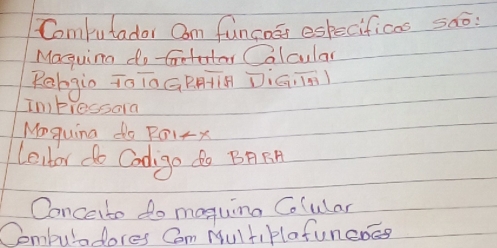 Computador Com funçoẽs especificas são:
Maquina de Calcular
Relogio FOTOGRAFIA DIGITAl
Impressora
Maquina de Raio x
Leitor de Codigo de BARA
Conceito do maquina Calular
Computadores Com Multiplafunções